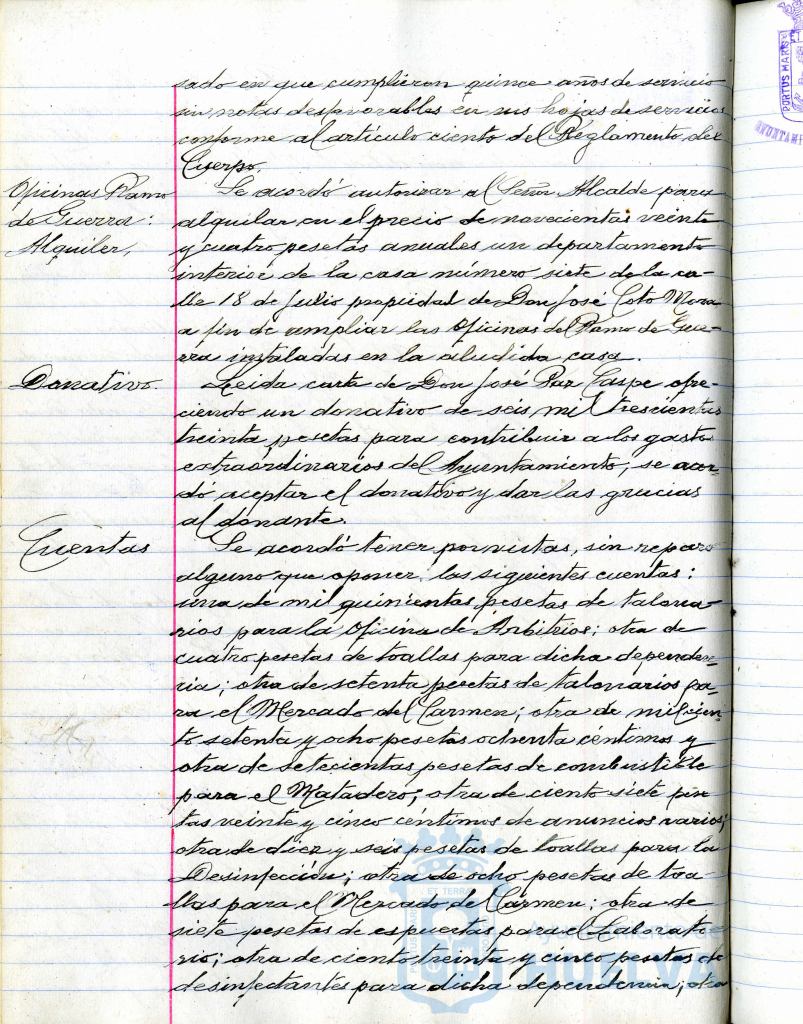 sado en que cumplieron quince años de servicio
sin notas desfavorables en sus hojas de servicios
conforme al artículo ciento del Reglamento del
Cuerpo.
Oficinas Ramo
de Guerra:
Alquiler,
Se acordó autorizar al Señor Alcalde para
alquilar en el precio de novecientas veinte
y cuatro pesetas anuales un departamento
interior de la casa número siete de la ca-
lle 18 de Julio propiedad de Don José Coto Mora
a fin de ampliar las Oficinas del Ramo de Gue-
rra instaladas en la aludida casa.
Donativo
Leida carta de Don José Paz ofre-
ciendo un donativo de seis mil trescientas
treinta pesetas para contribuir a los gastos
extraordinarios del Ayuntamiento, se acor-
dó aceptar el donativo y dar las gracias
al donante.
Cuentas
Se acordó tener por vistas, sin reparo
alguno que oponer, las siguientes cuentas:
una de mil quinientas pesetas de talona-
rios para la Oficina de Arbitrios; otra de
cuatro pesetas de toallas para dicha dependen-
cia; otra de setenta pesetas de talonarios pa-
ra el Mercado del Carmen; otra de mil cien-
to setenta y ocho pesetas ochenta céntimos y
otra de setecientas pesetas de combustible
para el Matadero; otra de ciento siete pese-
tas veinte y cinco céntimos de anuncios varios;
otra de diez y seis pesetas de toallas para la
Desinfección; otra de ocho pesetas de toa-
llas para el Mercado del Carmen; otra de
siete pesetas de espuertas para el Laborato-
rio; otra de ciento treinta y cinco pesetas de
desinfectantes para dicha dependencia; otra
PORTUS MARIS
AYUNTAMI
ET TERRAE
PORTUS MARIS
Ayuntamiento de
HUELVA